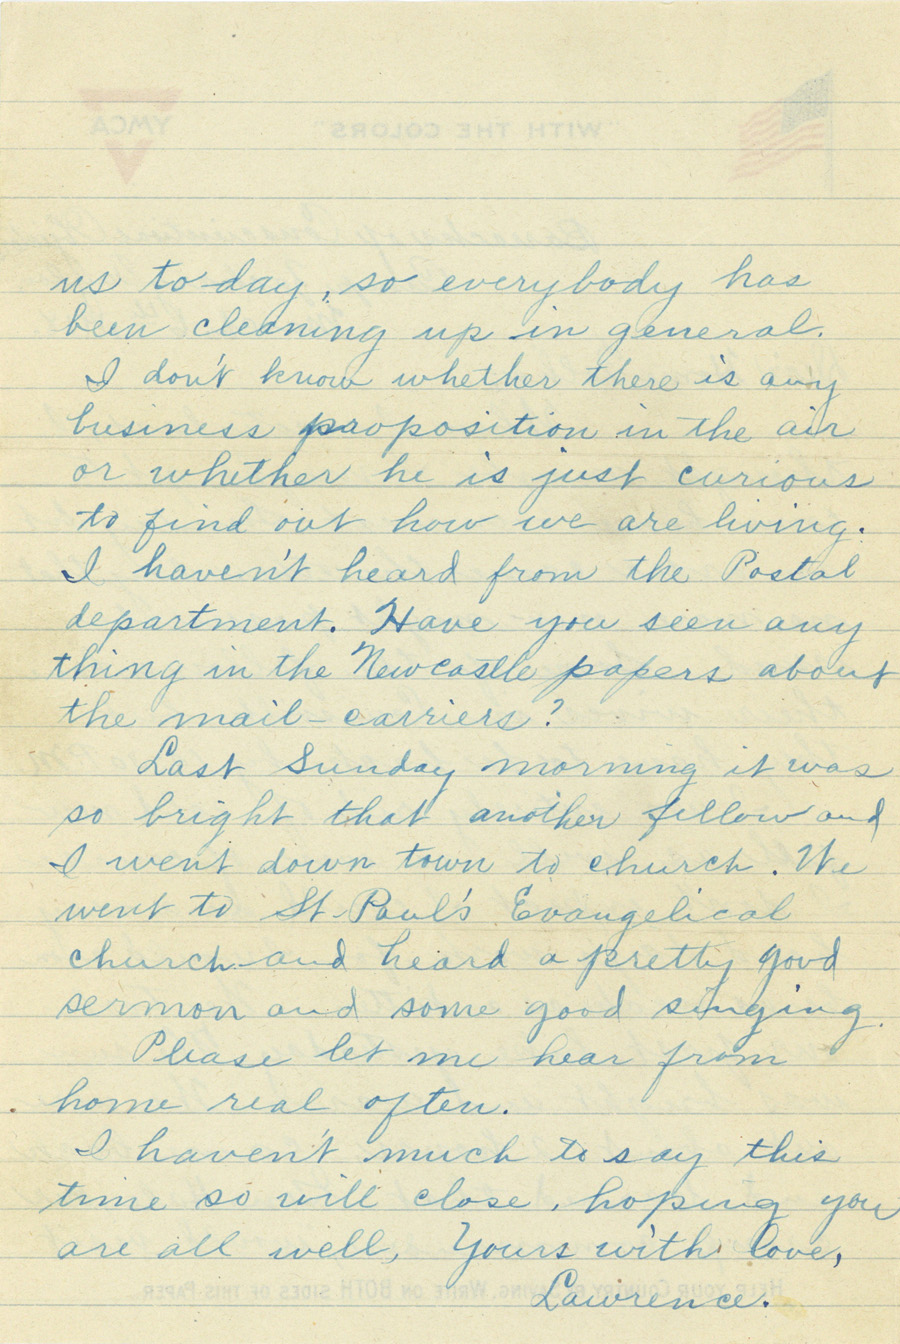 YMCA
"WITH THE COLORS"
us to-day, so everybody has
been cleaning up in general.
I don't know whether there is any
business proposition in the air
or whether he is just curious
to find out how we are living.
I haven't heard from the Postal
department. Have you seen any
thing in the Newcastle papers about
the mail-carriers?
Last Sunday morning it was
so bright that another fellow and
I went down town to church. We
went to St. Paul's Evangelical
church and heard a pretty good
sermon and some good singing.
Please let me hear from
home real often.
I haven't much to say this
time so will close, hoping you
are all well, Yours with love,
Lawrence.
HELP YOUR COUNTRY BY SAVING. WRITE ON BOTH SIDES OF THIS PAPER